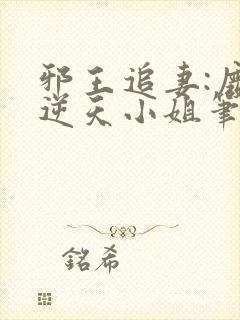 邪王追妻:
逆天小姐筆
銘希